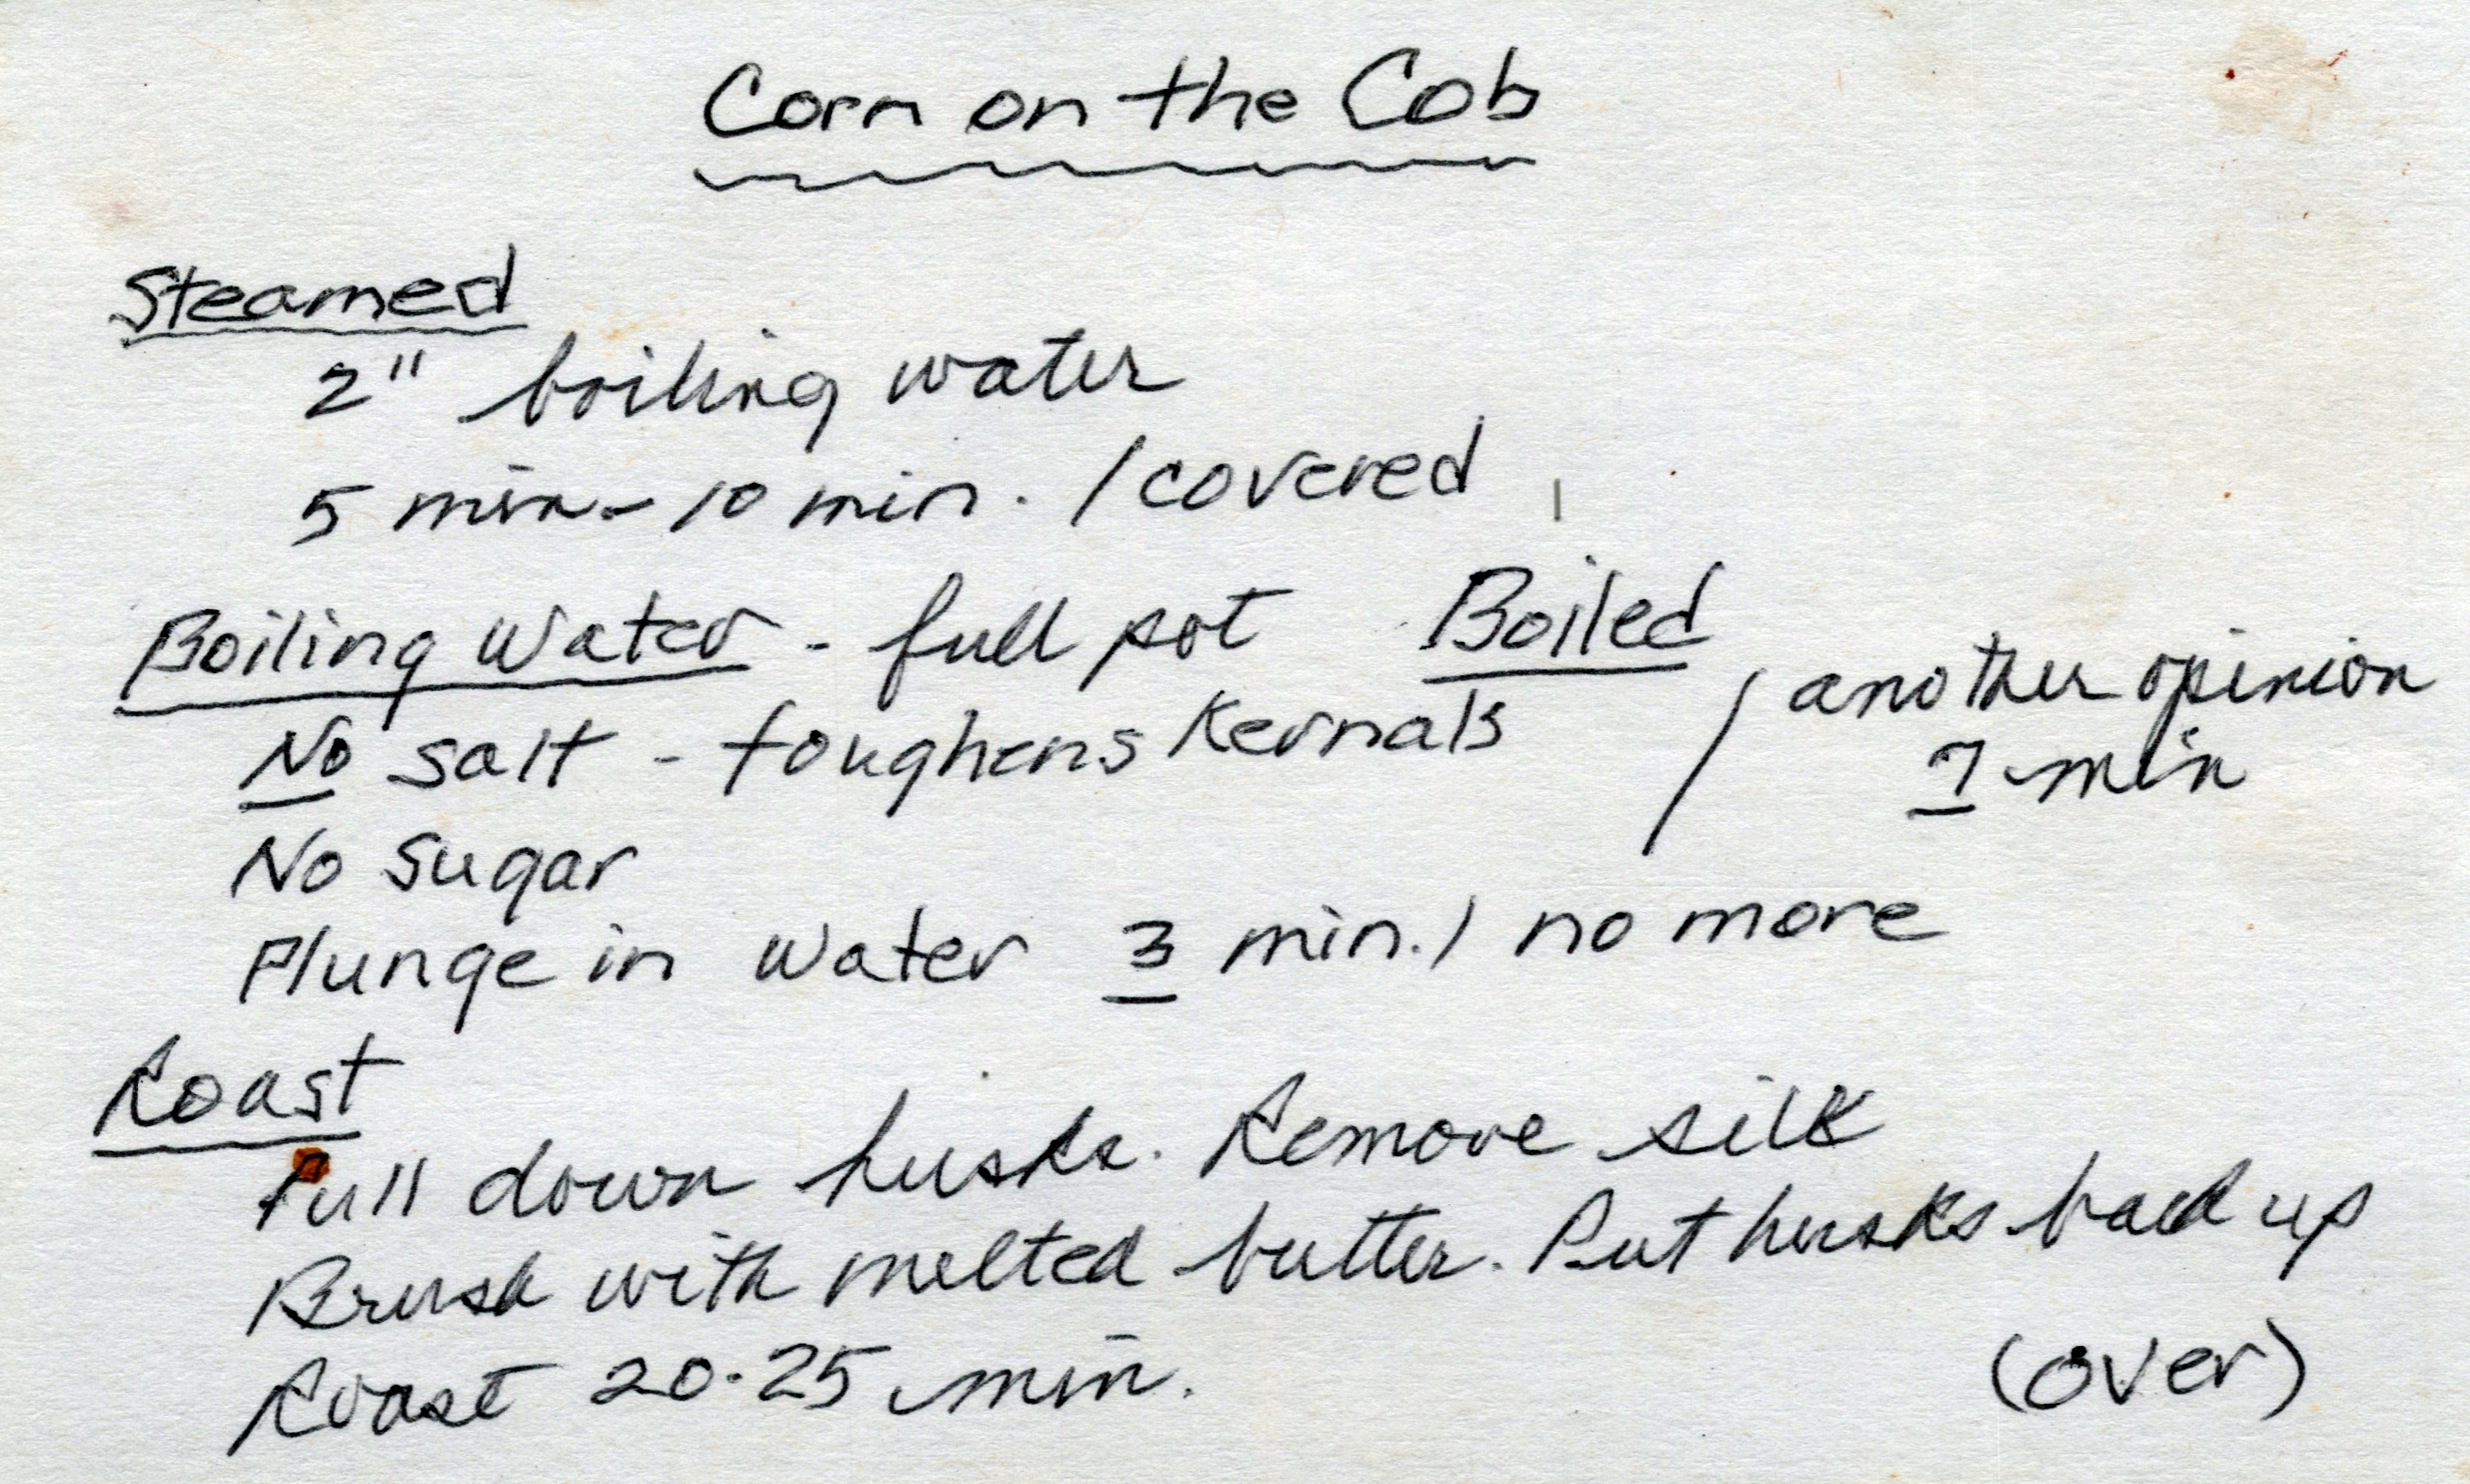 Corn on the Cob
Steamed
2" boiling water
5 min - 10 min. / covered
Boiling Water - full pot Boiled
No salt - toughens Kernals / another opinion
7 min
No sugar
Plunge in water 3 min. / no more
Roast
Pull down husks. Remove silk
Brush with melted butter. Put husks back up
Roast 20-25 min.
(over)